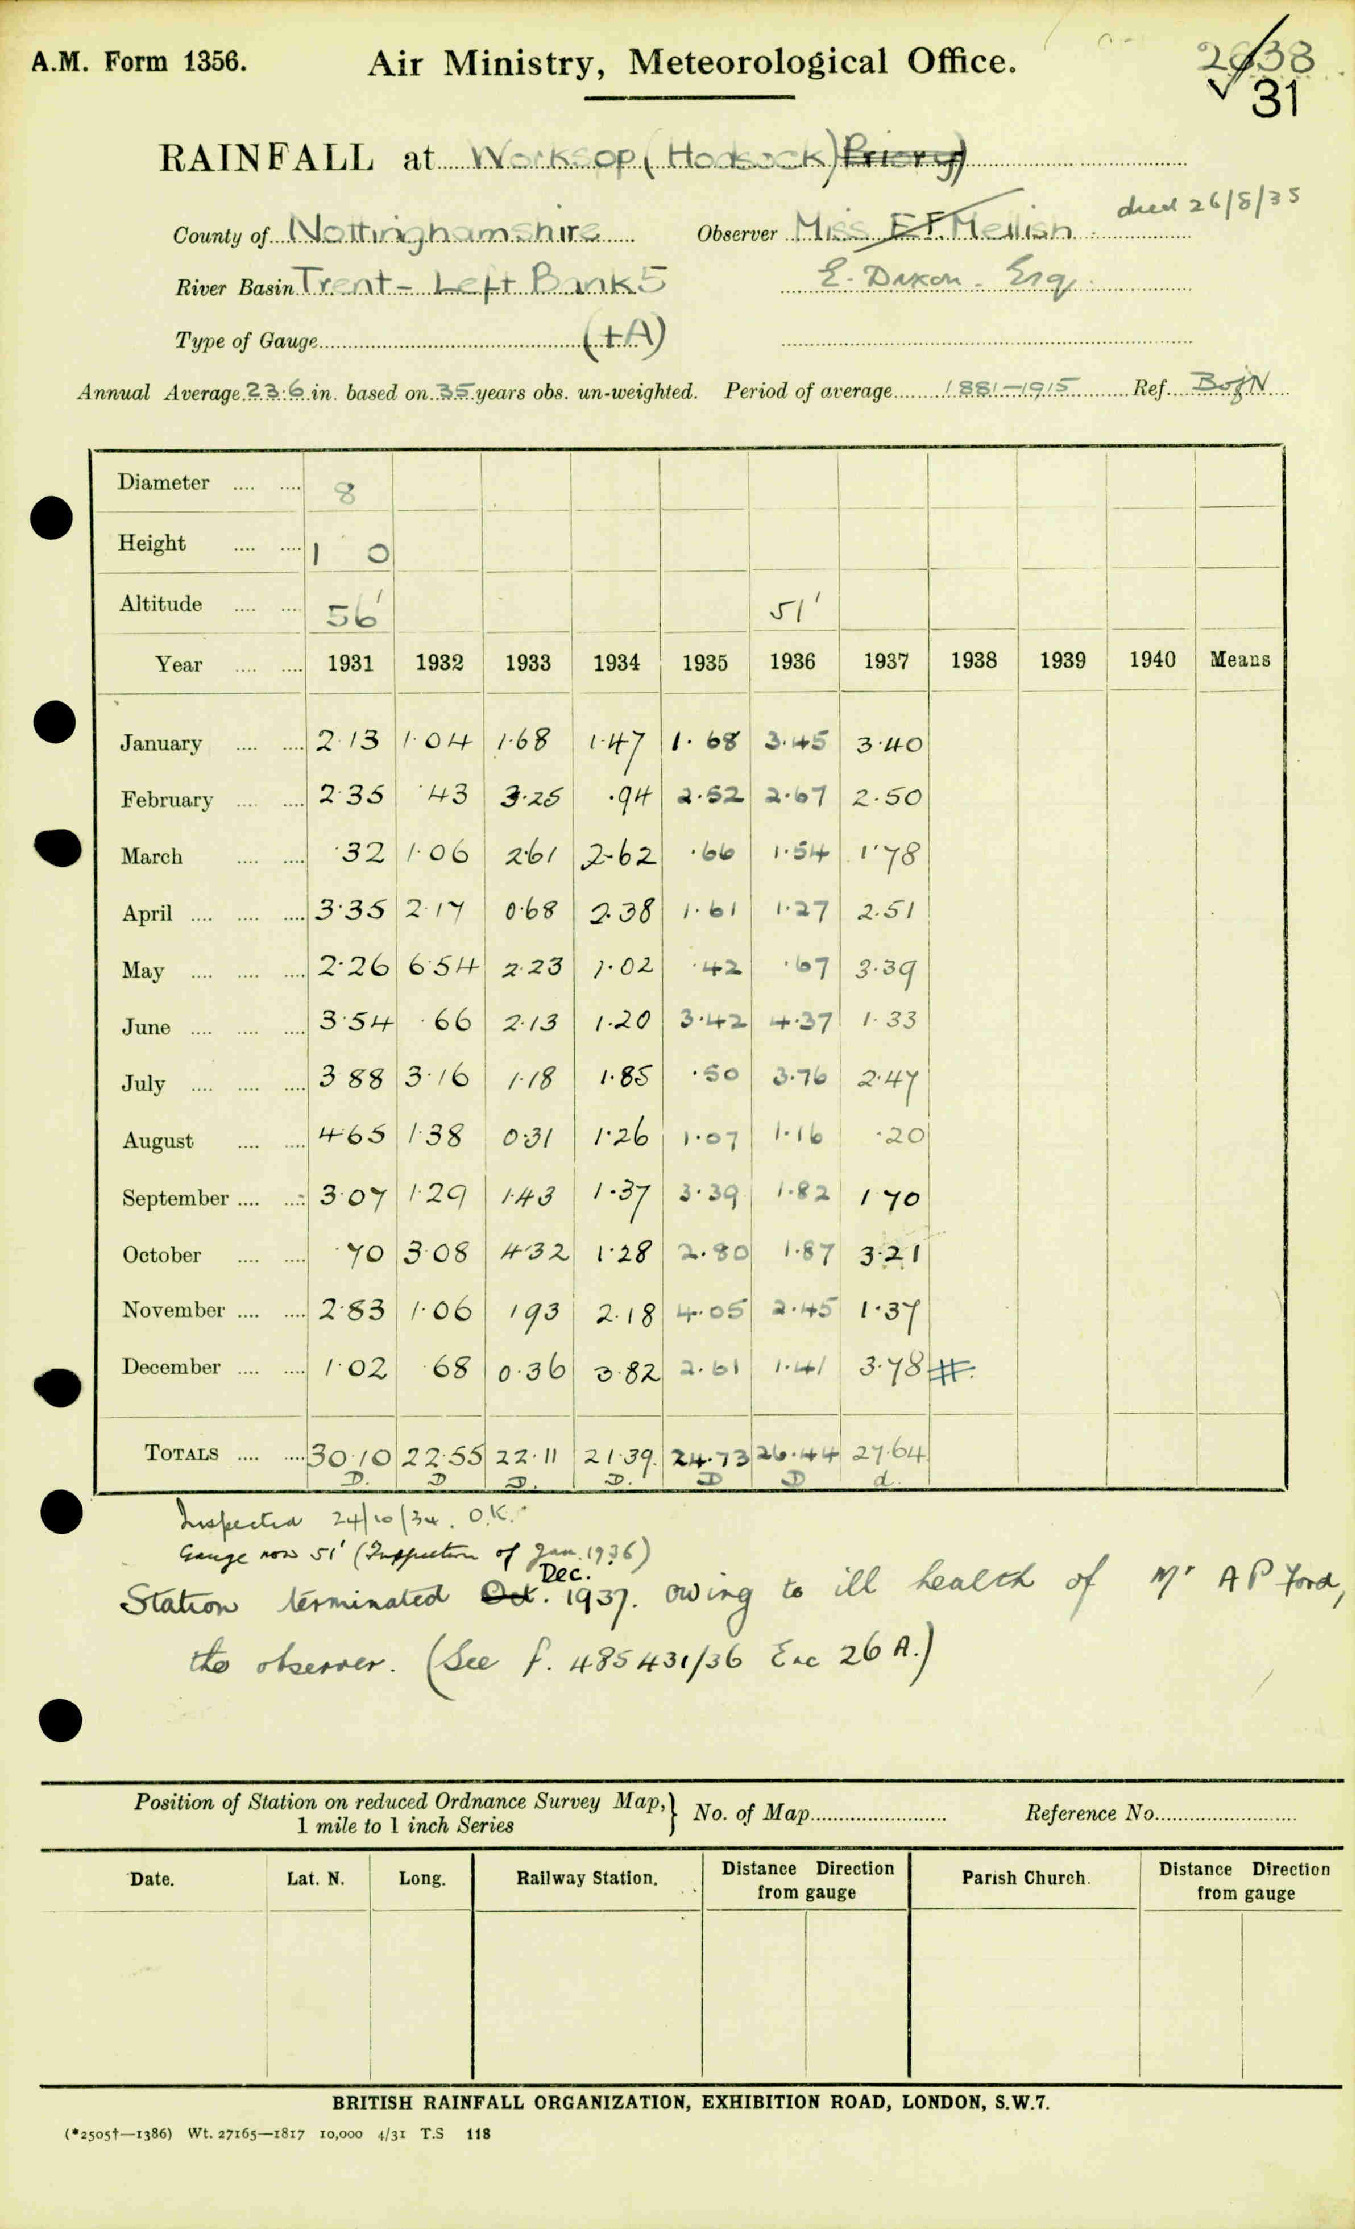 A.M. Form 1356. Air Ministry, Meteorological Office. 2638
31
RAINFALL at Worksop (Hodsock) Priory)
died 26/8/35
County of Nottinghamshire Observer Miss E F. Mellish
River Basin Trent - Left Bank 5 E. Dixon. Esq.
Type of Gauge (+A)
Annual Average 23.6 in. based on 35 years obs. un-weighted. Period of average 1881-1915 Ref. B of N
Diameter .... .... 8
Height .... .... 1 0
Altitude .... .... 56' 51'
Year .... .... 1931 1932 1933 1934 1935 1936 1937 1938 1939 1940 Means
January .... .... 2.13 1.04 1.68 1.47 1.68 3.45 3.40
February .... .... 2.35 .43 3.25 .94 2.52 2.67 2.50
March .... .... .32 1.06 2.61 2.62 .66 1.54 1.78
April .... .... .... 3.35 2.17 0.68 2.38 1.61 1.27 2.51
May .... .... .... 2.26 6.54 2.23 1.02 .42 .67 3.39
June .... .... .... 3.54 .66 2.13 1.20 3.42 4.37 1.33
July .... .... .... 3.88 3.16 1.18 1.85 .50 3.76 2.47
August .... .... 4.65 1.38 0.31 1.26 1.07 1.16 .20
September .... .... 3.07 1.29 1.43 1.37 3.39 1.82 1.70
October .... .... .70 3.08 4.32 1.28 2.80 1.87 3.21
November .... .... 2.83 1.06 1.93 2.18 4.05 2.45 1.37
December .... .... 1.02 .68 0.36 3.82 2.61 1.41 3.78 #
TOTALS .... .... 30.10 22.55 22.11 21.39 24.73 26.44 27.64
D. D D. D. D D d.
Inspected 24/10/34. O.K.
Gauge now 51' (Inspection of Jan. 1936)
Dec.
Station terminated Oct. 1937. owing to ill health of Mr A P Ford,
the observer. (See f. 485431/36 Enc 26 A.)
Position of Station on reduced Ordnance Survey Map, } No. of Map Reference No.
1 mile to 1 inch Series
Date. Lat. N. Long. Railway Station. Distance Direction Parish Church. Distance Direction
from gauge from gauge
BRITISH RAINFALL ORGANIZATION, EXHIBITION ROAD, LONDON, S.W.7.
(*2505†—1386) Wt. 27165—1817 10,000 4/31 T.S 118